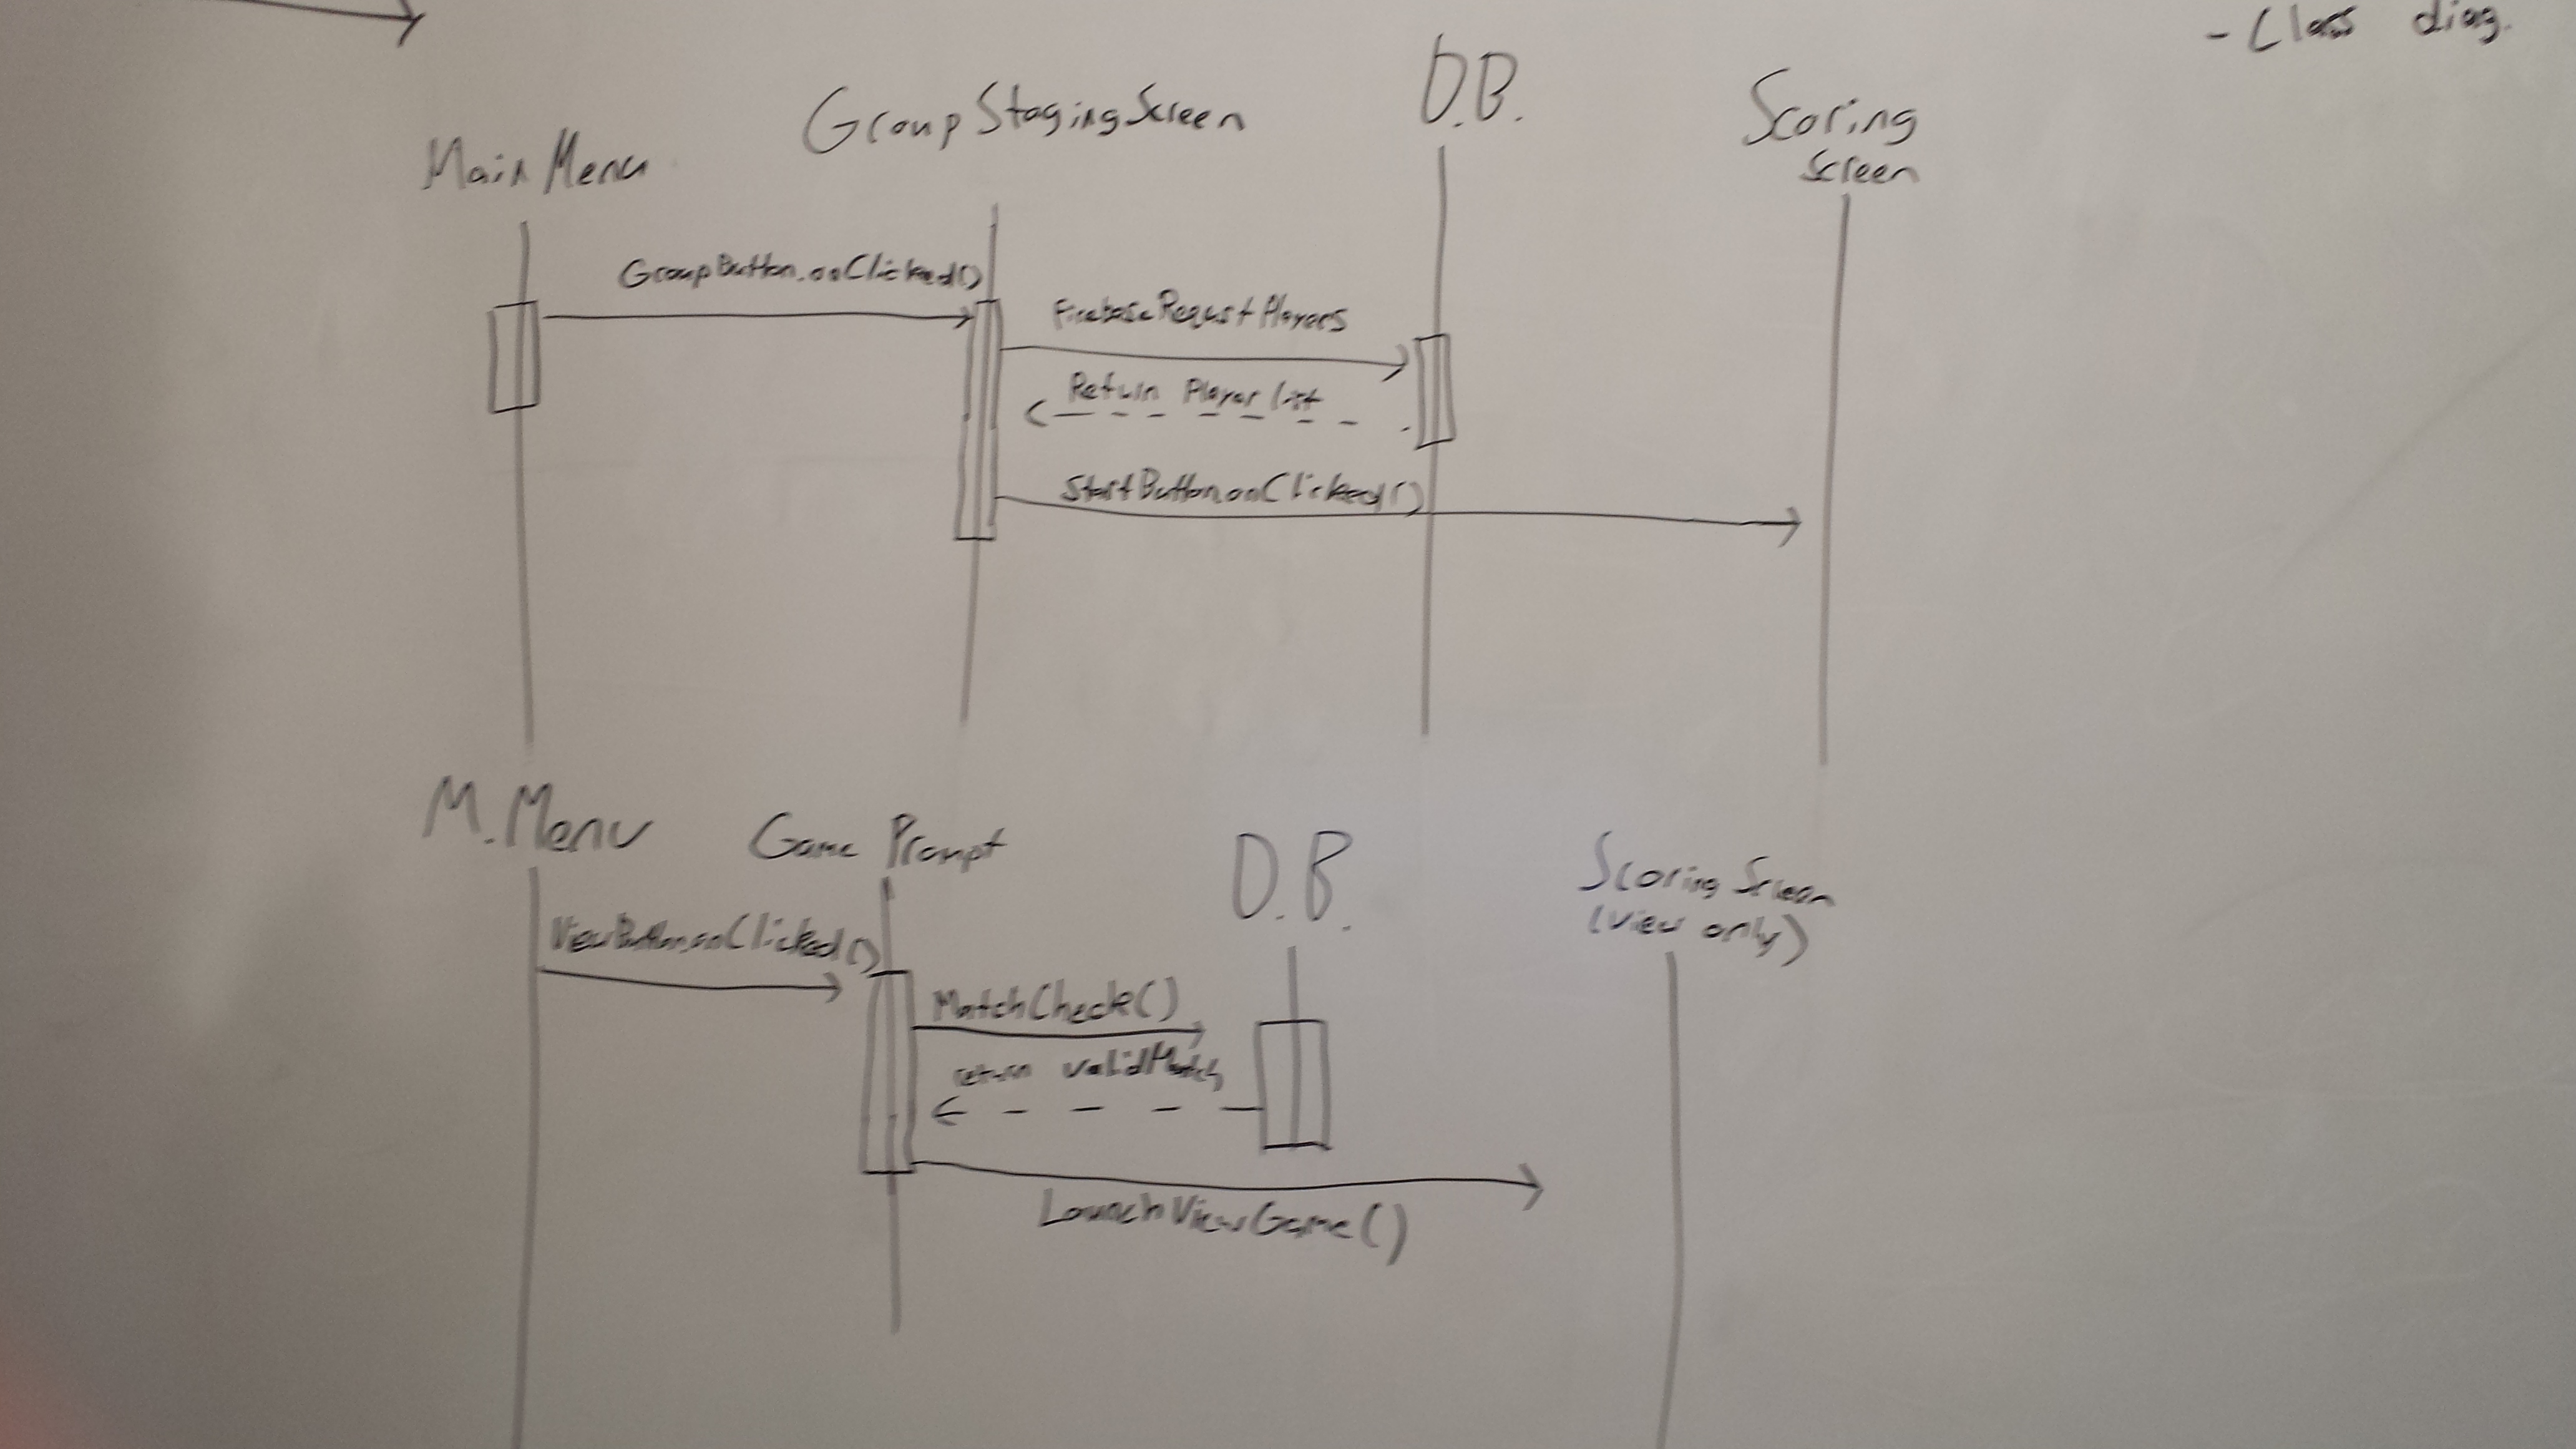 - Class diag.
MainMenu
GroupStagingScreen
D.B.
Scoring
Screen
GroupButton.onClicked()
FirebaseRequstPlayers
Return Player list
StartButton.onClicked()
M.Menu
Game Prompt
D.B.
Scoring Screen
(view only)
ViewButton.onClicked()
MatchCheck()
return validMatch
LaunchViewGame()